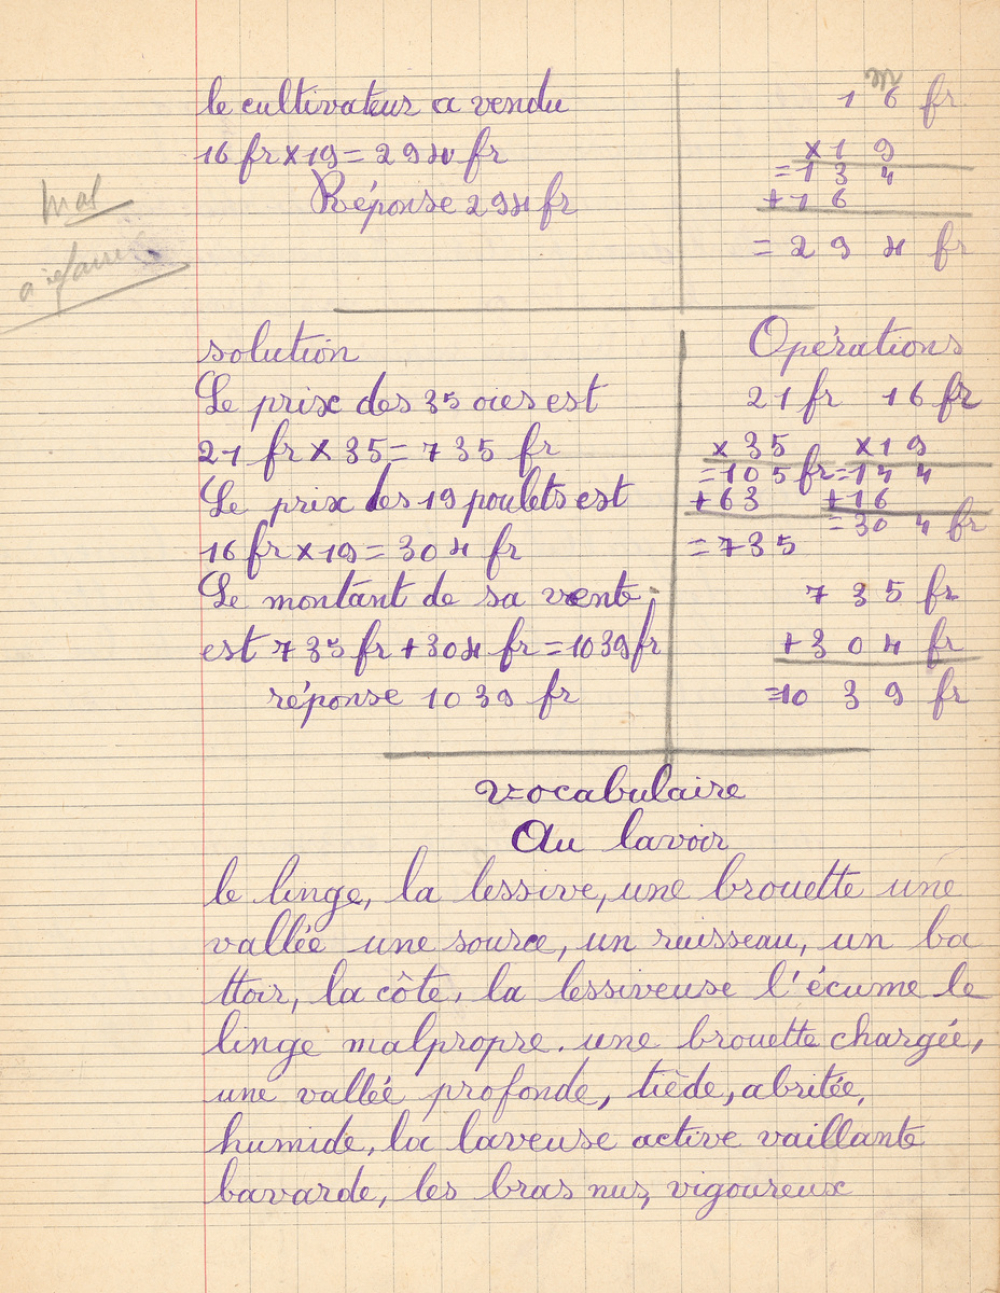 le cultivateur a vendu
16 fr x 19 = 294 fr
Réponse 294 fr
mal
à refaire
16 fr
x 19
= 134
+ 16
= 294 fr
solution
Le prix des 35 oies est
21 fr x 35 = 735 fr
Le prix des 19 poulets est
16 fr x 19 = 304 fr
Le montant de sa vente
est 735 fr + 304 fr = 1039 fr
réponse 1039 fr
Opérations
21 fr 16 fr
x 35 x 19
= 105 fr = 144
+ 63 + 16
= 735 = 304 fr
735 fr
+ 304 fr
= 1039 fr
vocabulaire
Au lavoir
le linge, la lessive, une brouette une
vallée une source, un ruisseau, un ba
ttoir, la côte, la lessiveuse l'écume le
linge malpropre. une brouette chargée,
une vallée profonde, tiède, abritée,
humide, la laveuse active vaillante
bavarde, les bras nus, vigoureux